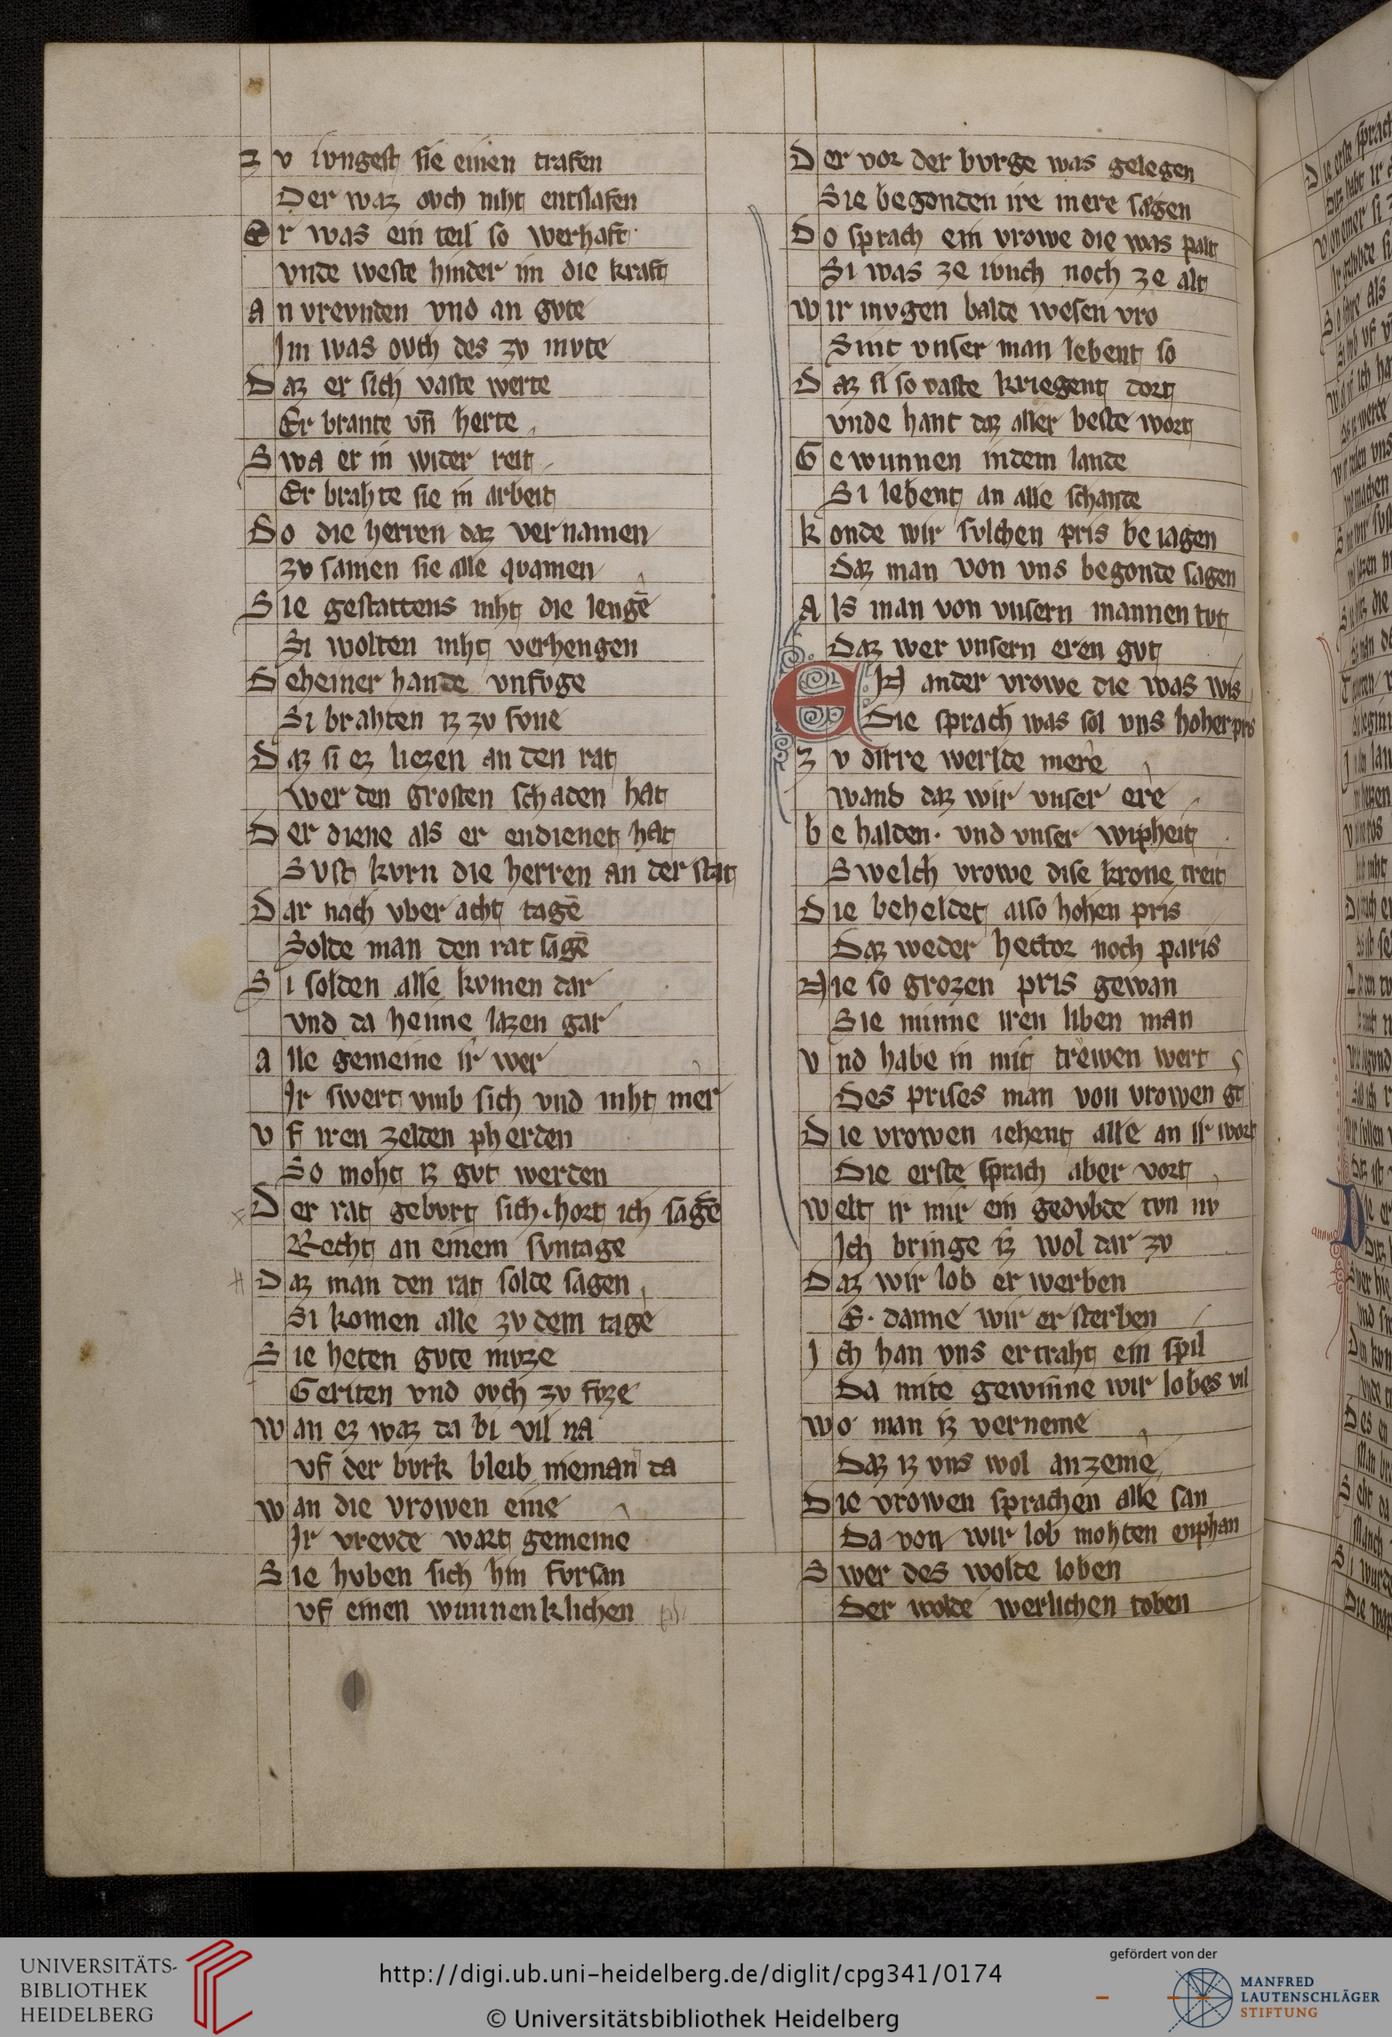 Zv ivngest sie einen trafen
Der waz ovch niht entslafen
Er was ein teil so werhaft
vnde weste hinder im die kraft
An vrevnden vnd an gvte
Im was ovch des zv mvte
Daz er sich vaste werte
Er brante vn̄ herte
Swa er in wider reit
Er brahte sie in arbeit
Do die herren daz vernamen
zv samen sie alle qvamen
Sie gestattens niht die lengē
Si wolten niht verhengen
Deheiner hande vnfvge
Si brahten iz zv fvne
Daz si ez liezen an den rat
wer den grosten schaden hat
Der diene als er endienet hat
Svst kvrn die herren an der stat
Dar nach vber acht tagē
Solde man den rat sagē
Si solden alle kvmen dar
vnd da heime lazen gar
alle gemeine ir wer
Ir swert vmb sich vnd niht mer
vf iren zelden pherden
So moht iz gvt werden
Der rat gebvrt sich. hort ich sagē
Recht an einem svntage
Daz man den rat solde sagen
Si komen alle zv dem tage
Sie heten gvte mvze
Geriten vnd ovch zv fvze
wan ez waz da bi vil na
vf der bvrk bleib nieman da
wan die vrowen eine
Ir vrevde wart gemeine
Sie hvben sich hin fvrsan
vf einen wunnenklichen
Der vor der bvrge was gelegen
Sie begonden ire mere sagen
Do sprach ein vrowe die was palt
Si was ze ivnch noch ze alt
wir mvgen balde wesen vro
Sint vnser man lebent so
Daz si so vaste kriegent dort
vnde hant daz aller beste wort
Gewunnen in dem lande
Si lebent an alle schande
konde wir svlchen pris beiagen
Daz man von vns begonde sagen
Als man von vnsern mannen tvt
Daz wer vnsern eren gvt
EIN ander vrowe die was wis
Die sprach was sol vns hoher pris
zv dirre werlde mere
wand daz wir vnser ere
behalden. vnd vnser wipheit
Swelch vrowe dise krone treit
Die beheldet also hohen pris
Daz weder hector noch paris
Nie so grozen pris gewan
Sie minne iren liben man
vnd habe in mit trewen wert
Des prises man von vrowen gt
Die vrowen iehent alle an ir wort
Die erste sprach aber vort
welt ir mir ein gedvlde tvn nv
Ich bringe iz wol dar zv
Daz wir lob erwerben
E. danne wir ersterben
Ich han vns ertraht ein spil
Da mite gewiñne wir lobes vil
wo man iz verneme
Daz iz vns wol anzeme
Die vrowen sprachen alle san
Da von wir lob mohten enphan
Swer des wolde loben
Der wolde werlichen toben
UNIVERSITÄTS-
BIBLIOTHEK
HEIDELBERG
http://digi.ub.uni-heidelberg.de/diglit/cpg341/0174
© Universitätsbibliothek Heidelberg
gefördert von der
MANFRED
LAUTENSCHLÄGER
STIFTUNG